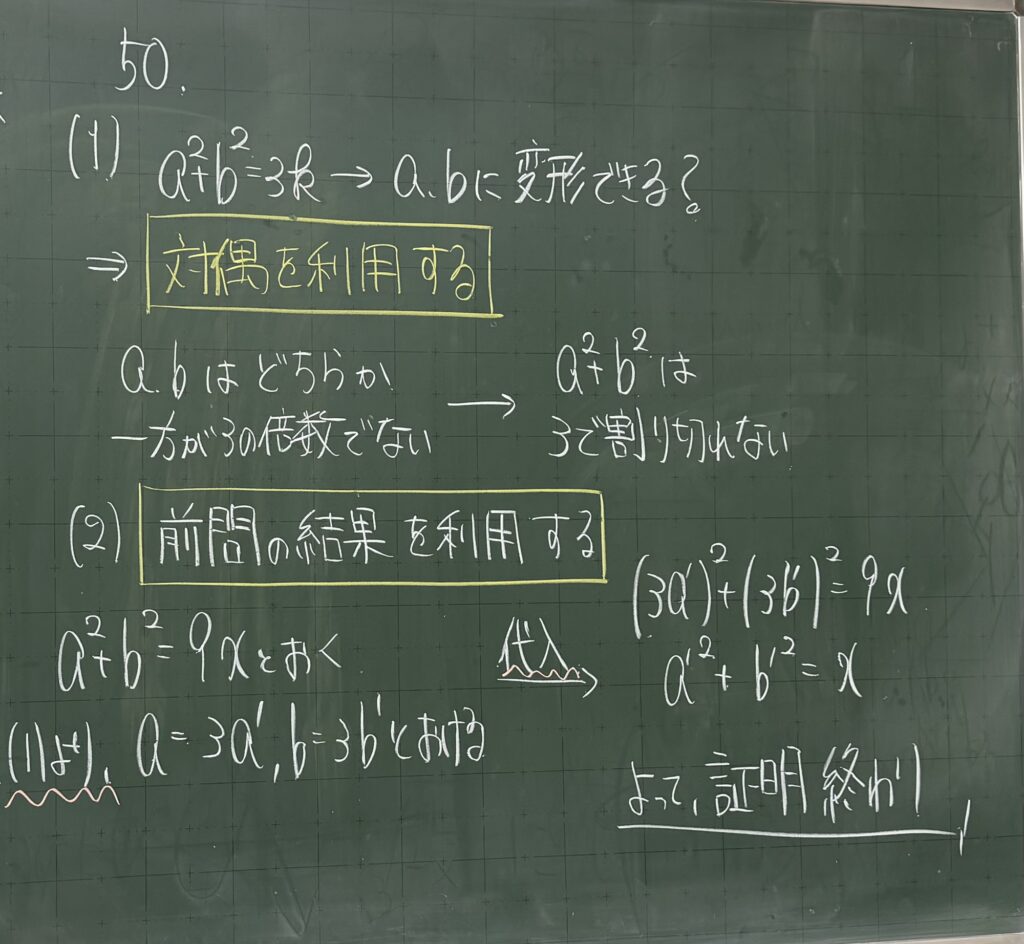 50.
(1) a²+b²=3k → a.bに変形できる?
⇒ 対偶を利用する
a.bはどちらか
一方が3の倍数でない
→
a²+b²は
3で割り切れない
(2) 前問の結果を利用する
a²+b²=9xとおく
(1)より、a=3a',b=3b'とおける
代入
→
(3a')²+(3b')²=9x
a'²+b'²=x
よって、証明終わり